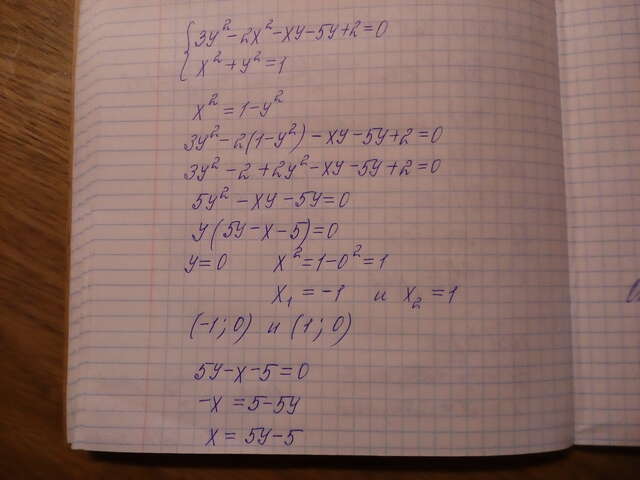 3y² - 2x² - xy - 5y + 2 = 0
x² + y² = 1
x² = 1 - y²
3y² - 2(1 - y²) - xy - 5y + 2 = 0
3y² - 2 + 2y² - xy - 5y + 2 = 0
5y² - xy - 5y = 0
y(5y - x - 5) = 0
y = 0 x² = 1 - 0² = 1
x₁ = -1 и x₂ = 1
(-1; 0) и (1; 0)
5y - x - 5 = 0
-x = 5 - 5y
x = 5y - 5